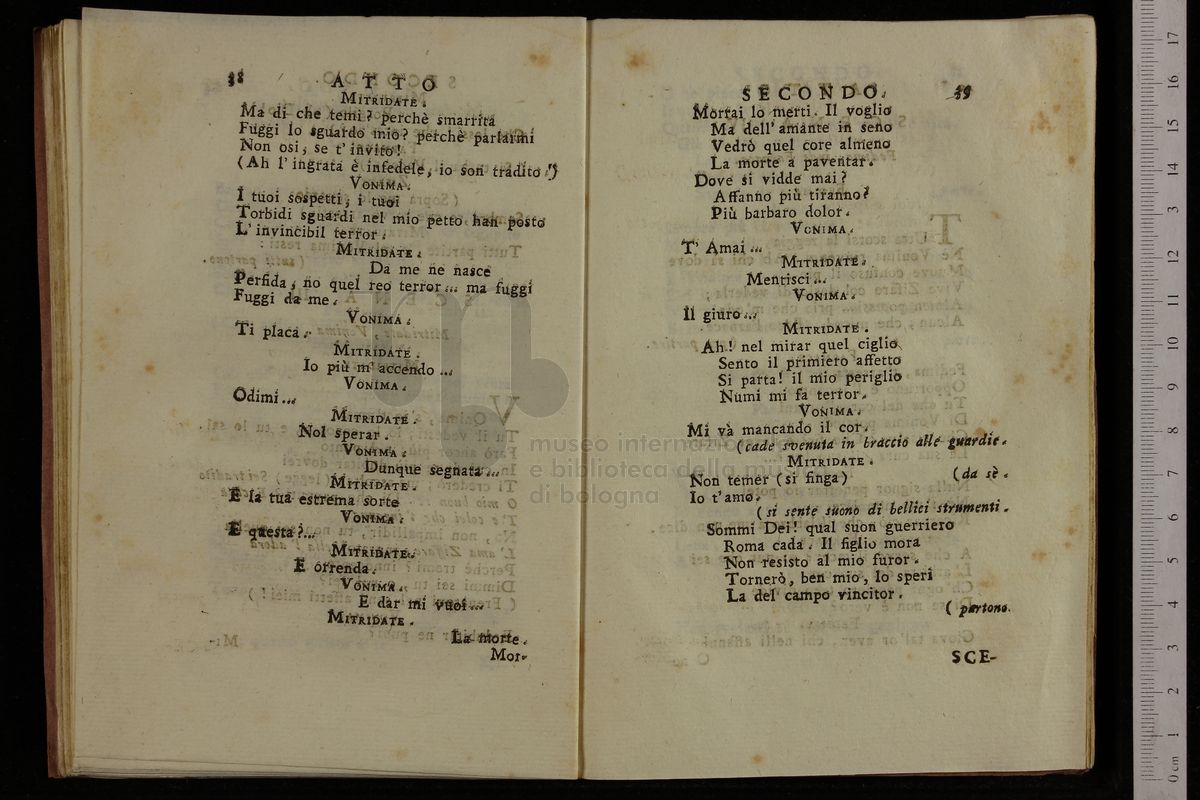 38 ATTO
MITRIDATE.
Ma di che temi? perchè smarrita
Fuggi lo sguardo mio? perchè parlarmi
Non osi, se t' invito!
(Ah l' ingrata è infedele, io son tradito!)
VONIMA.
I tuoi sospetti, i tuoi
Torbidi sguardi nel mio petto han posto
L' invincibil terror.
MITRIDATE.
Da me ne nasce
Perfida, no quel reo terror... ma fuggi
Fuggi da me.
VONIMA.
Ti placa.
MITRIDATE.
Io più m' accendo ...
VONIMA.
Odimi...
MITRIDATE.
Nol sperar.
VONIMA.
Dunque segnata...
MITRIDATE.
E la tua estrema sorte
VONIMA.
E questa?...
MITRIDATE.
E orrenda.
VONIMA.
E dar mi vuoi...
MITRIDATE.
La morte.
Mor-
SECONDO. 39
Mortai lo merti. Il voglio
Ma dell' amante in seno
Vedrò quel core almeno
La morte a paventar.
Dove si vidde mai?
Affanno più tiranno?
Più barbaro dolor.
VONIMA.
T' Amai ...
MITRIDATE.
Mentisci...
VONIMA.
Il giuro...
MITRIDATE.
Ah! nel mirar quel ciglio
Sento il primiero affetto
Si parta! il mio periglio
Numi mi fa terror.
VONIMA.
Mi và mancando il cor.
(cade svenuta in braccio alle guardie.
MITRIDATE.
Non temer (si finga) (da sè.
Io t'amo.
(si sente suono di bellici strumenti.
Sommi Dei! qual suon guerriero
Roma cada. Il figlio mora
Non resisto al mio furor.
Tornerò, ben mio, lo speri
La del campo vincitor.
(partono.
SCE-
museo internazionale
e biblioteca della musica
di bologna
0 cm 1 2 3 4 5 6 7 8 9 10 11 12 13 14 15 16 17